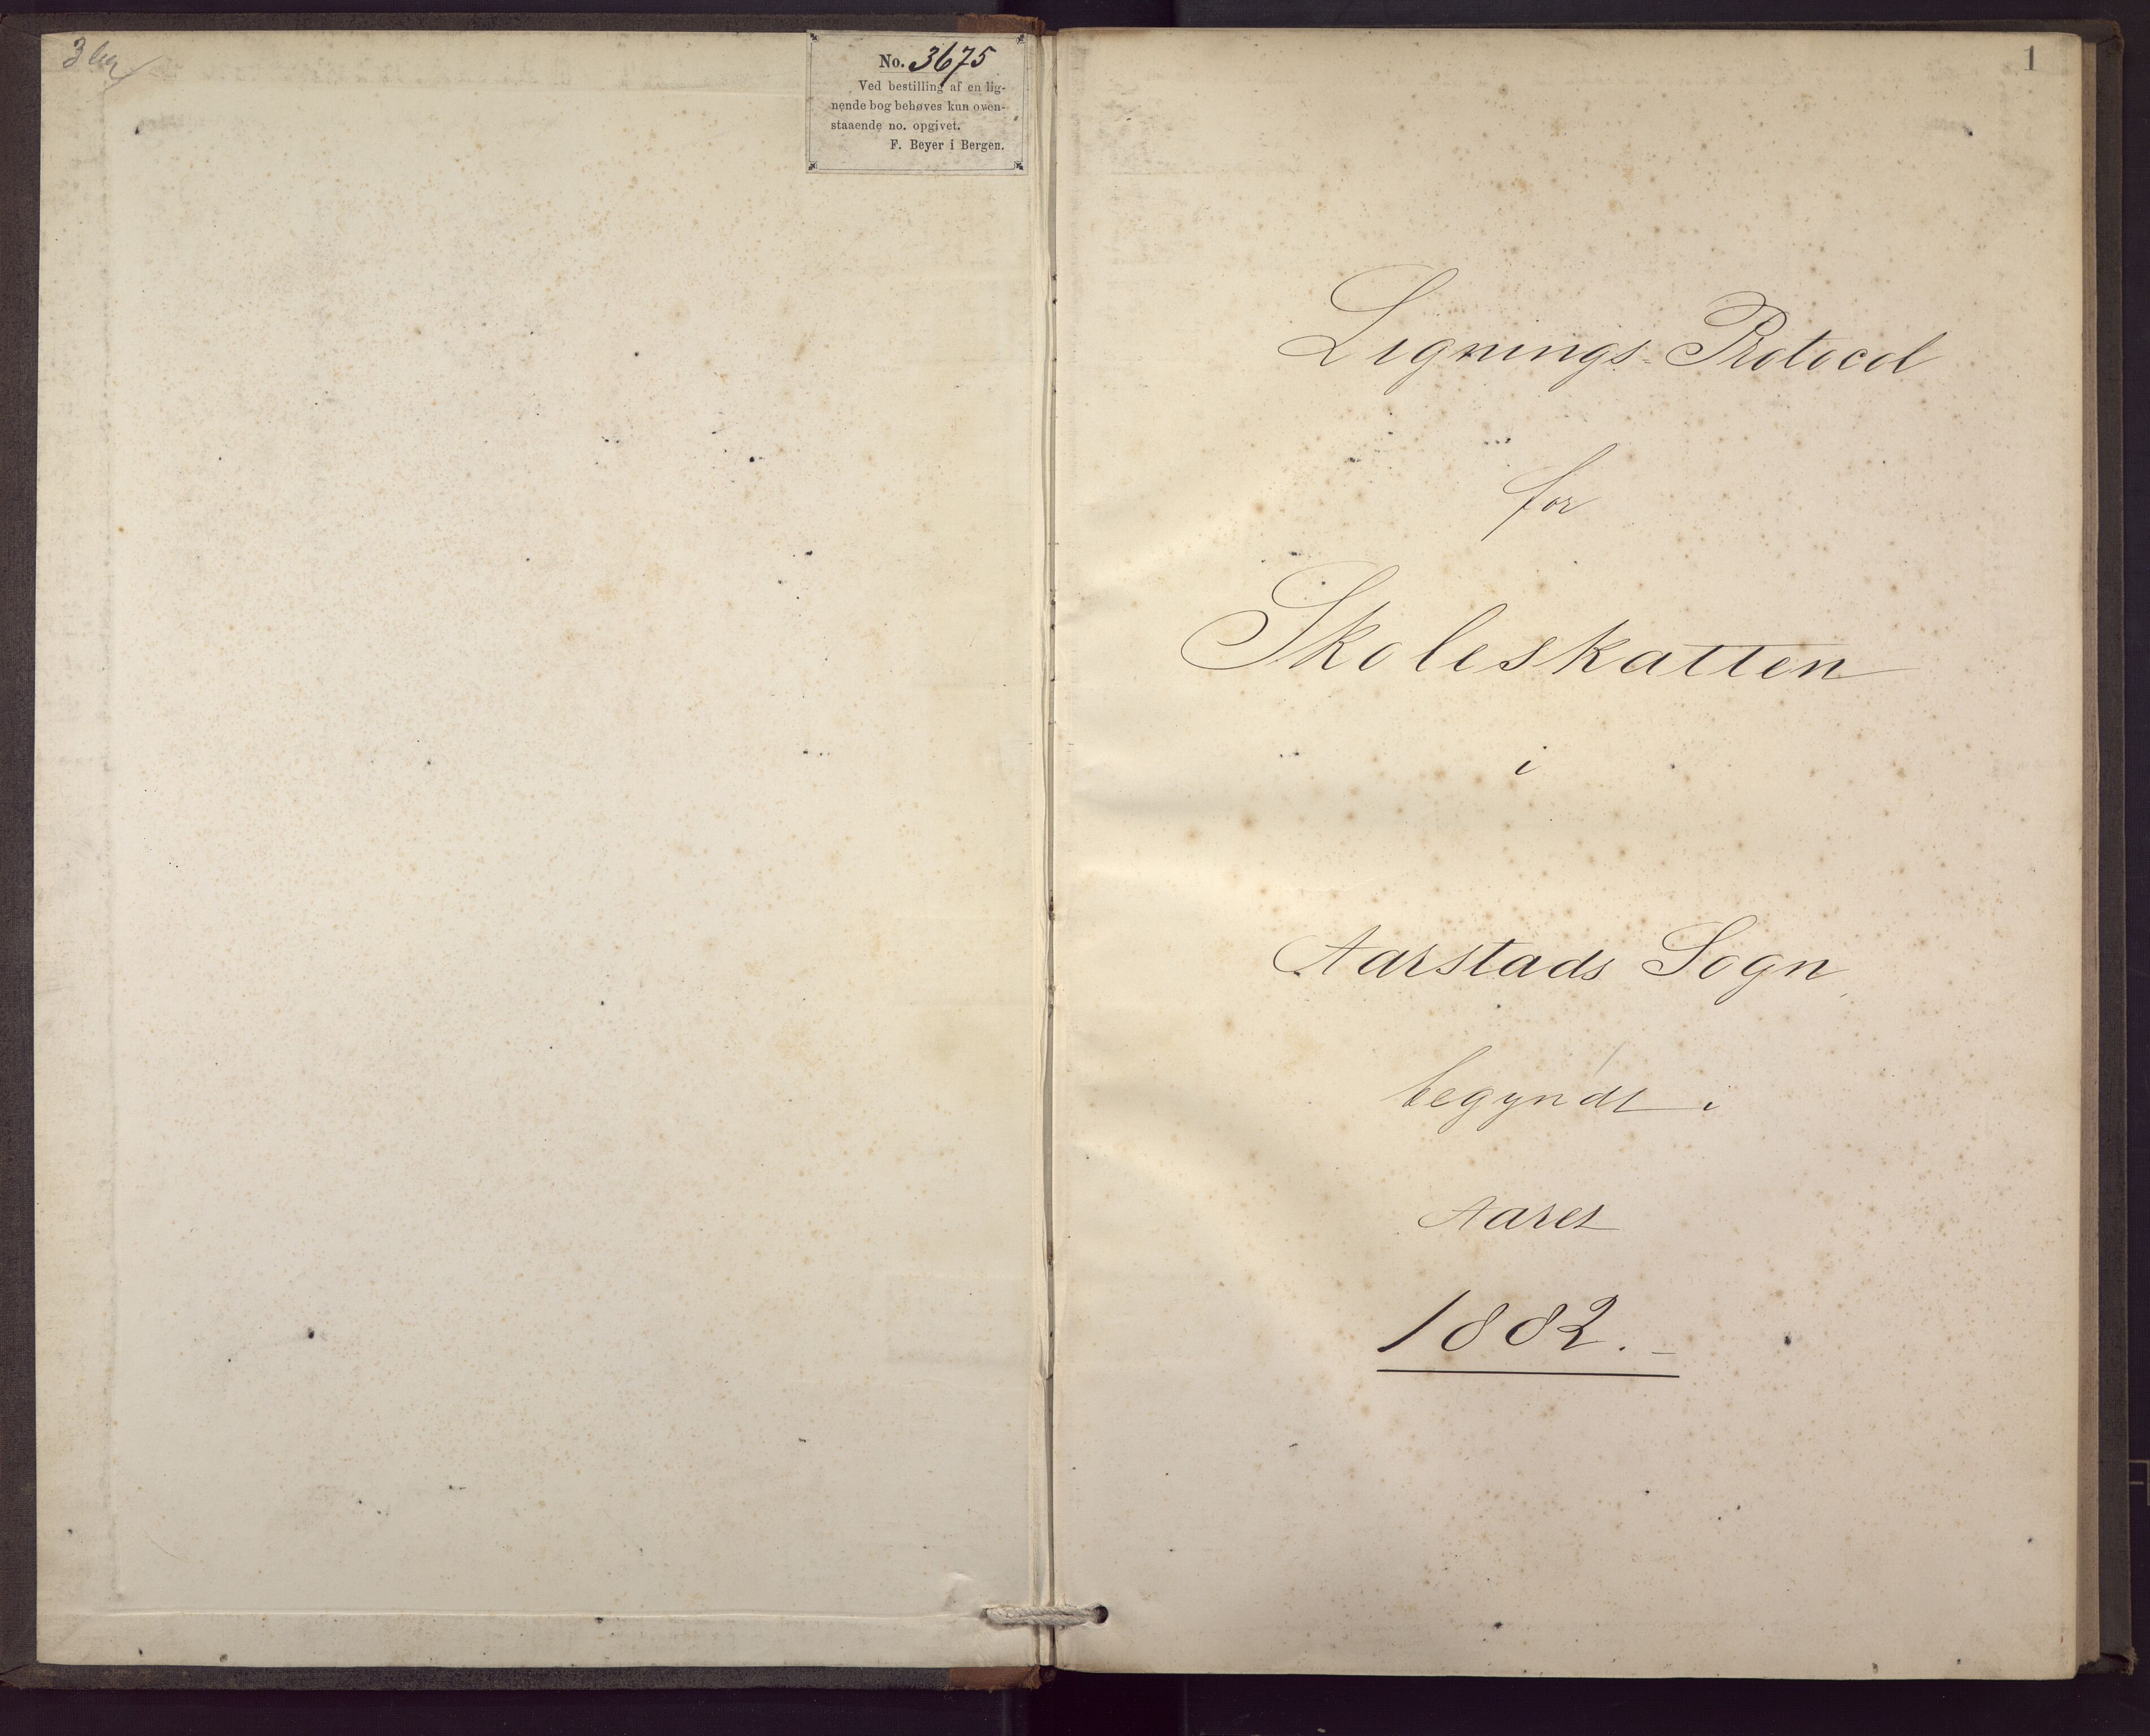 No. 3675
Ved bestilling af en lig-
nende bog behøves kun oven-
staaende no. opgivet.
F. Beyer i Bergen.
1
Lignings-Protocol
for
Skoleskatten
i
Aarstads Sogn
begyndt i
Aaret
1882.-